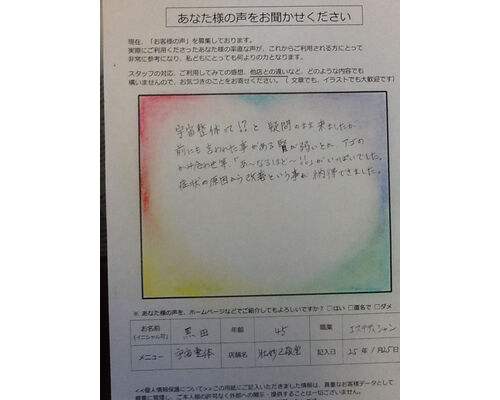 あなた様の声をお聞かせください
現在、「お客様の声」を募集しております。
実際にご利用くださったあなた様の率直な声が、これからご利用される方にとって
非常に参考になり、私どもにとっても何よりの力となります。
スタッフの対応、ご利用してみての感想、他店との違いなど、どのような内容でも
構いませんので、お気づきのことをお寄せください。（ 文章でも、イラストでも大歓迎です）
宇宙整体って!?と 疑問のまま来ましたが、
前にも言われた事がある腎が弱いとか、アゴの
かみ合わせ等、「あ〜なるほど〜!!」がいっぱいでした。
症状の原因から改善という事が 納得できました。
※ あなた様の声を、ホームページなどでご紹介してもよろしいですか？ □はい □匿名で □ダメ
お名前 (イニシャル可) 黒田 年齢 45 職業 エステティシャン
メニュー 宇宙整体 店舗名 記入日 25年 1月25日
<<個人情報保護について>>この用紙にご記入いただきました情報は、貴重なお客様データとして
厳重に管理し、ご本人様の許可なく外部への開示・提供することは一切ございません。